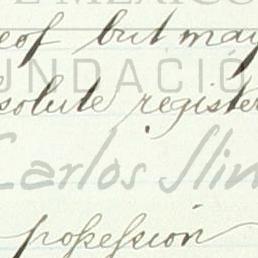 DE MÉXICO
eof but may
FUNDACIÓ
solute register
Carlos Slim
possession